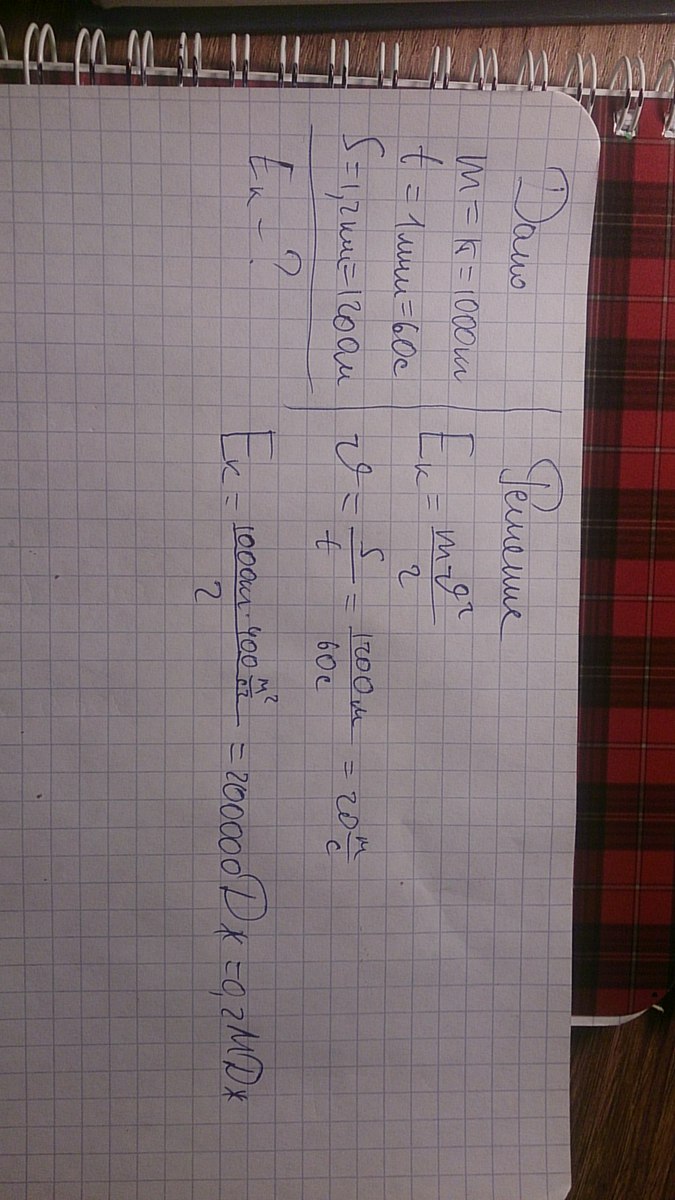 Дано
m = т = 1000кг
t = 1мин = 60с
S = 1,2км = 1200м
Eк - ?
Решение
Eк = mv²/2
v = S/t = 1200м/60с = 20 м/с
Eк = 1000кг · 400 м²/с² / 2 = 200000 Дж = 0,2 МДж